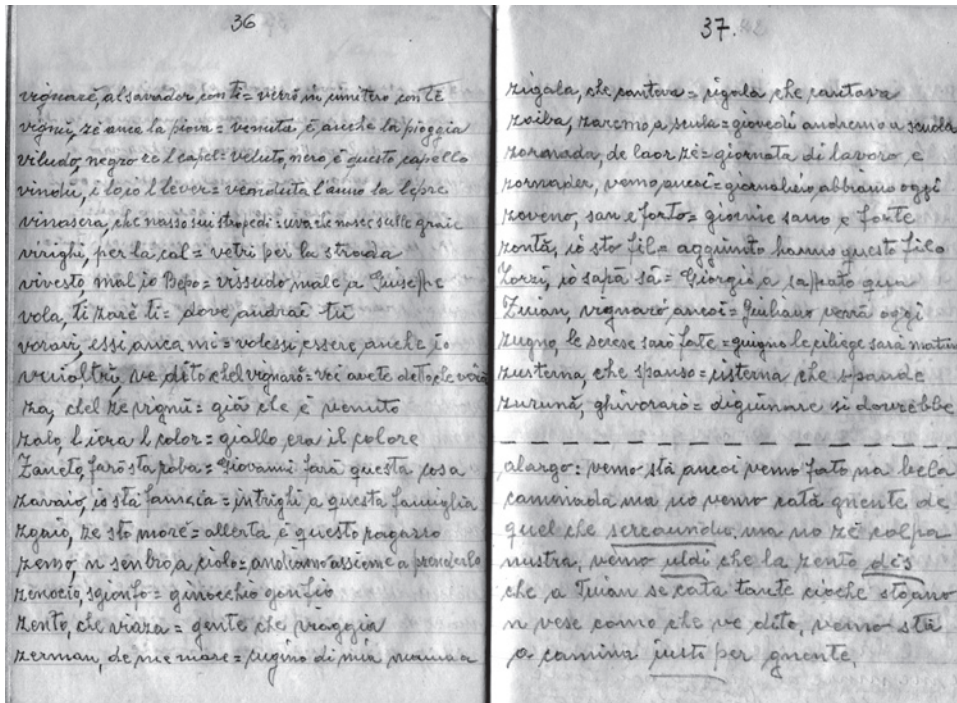 36
vignarè, al savador con ti = verrò in cimitero con te
vignù, zè anca la piova = venuta, è anche la pioggia
viludo, negro ze l capel = veluto, nero è questo capello
vindù, i lo jo l lever = venduta l'anno la lepre
vinasera, che nasso sui = uva che nasce sulle graie
virighi, per la cal = vetri per la strada
vivesto mal jo Bepo = vissudo male a Giuseppe
vola, ti zarè ti = dove andrai tu
voravi, essi anca mi = volessi essere anche io
vuioltri, ve dito chel vignarò = voi avete detto che verà
za, chel ze vignù = già che è venuto
zalo, l iera l color = giallo era il colore
Zaneto, farò sta roba = Giovanni farà questa cosa
zavaio, jo stà fameia = intrighi a questa famiglia
zgaio, ze sto morè = allerta è questo ragasso
zemo, n senbro a ciolo = andiamo assieme a prenderlo
zenocio, sgionfo = ginocchio gonfio
zento, che viaza = gente che viaggia
zerman, de me mare = cugino di mia mamma
37.
zigala, che cantava = cigala che cantava
zoiba, zaremo a scula = giovedì andremo a scuola
zornada, de laor zè = giornata di lavoro è
zornader, vemo ancoi = giornaliero, abbiamo oggi
zoveno, san e forto = giovine sano e forte
zontà, jo sto fil = aggiunto hanno questo filo
Zorzi, jo sapà sà = Giorgio, a sappato qua
Zuian, vignarò ancoi = Giuliano verrà oggi
zugno, le serese sarò fate = giugno le ciliege sarà
zusterna, che spanso = cisterna che spande
zurunà, ghivorarò = diguinare si dovrebbe
alargo: vemo stà ancoi vemo fato na bela
caminada ma no vemo catà gnente de
quel che sercaundio. ma no zè colpa
nustra, vemo uldì che la zento dis
che a Zuian se cata tante cioche
n vese como che ve dito, vemo stà
a caminà justi per gnente.